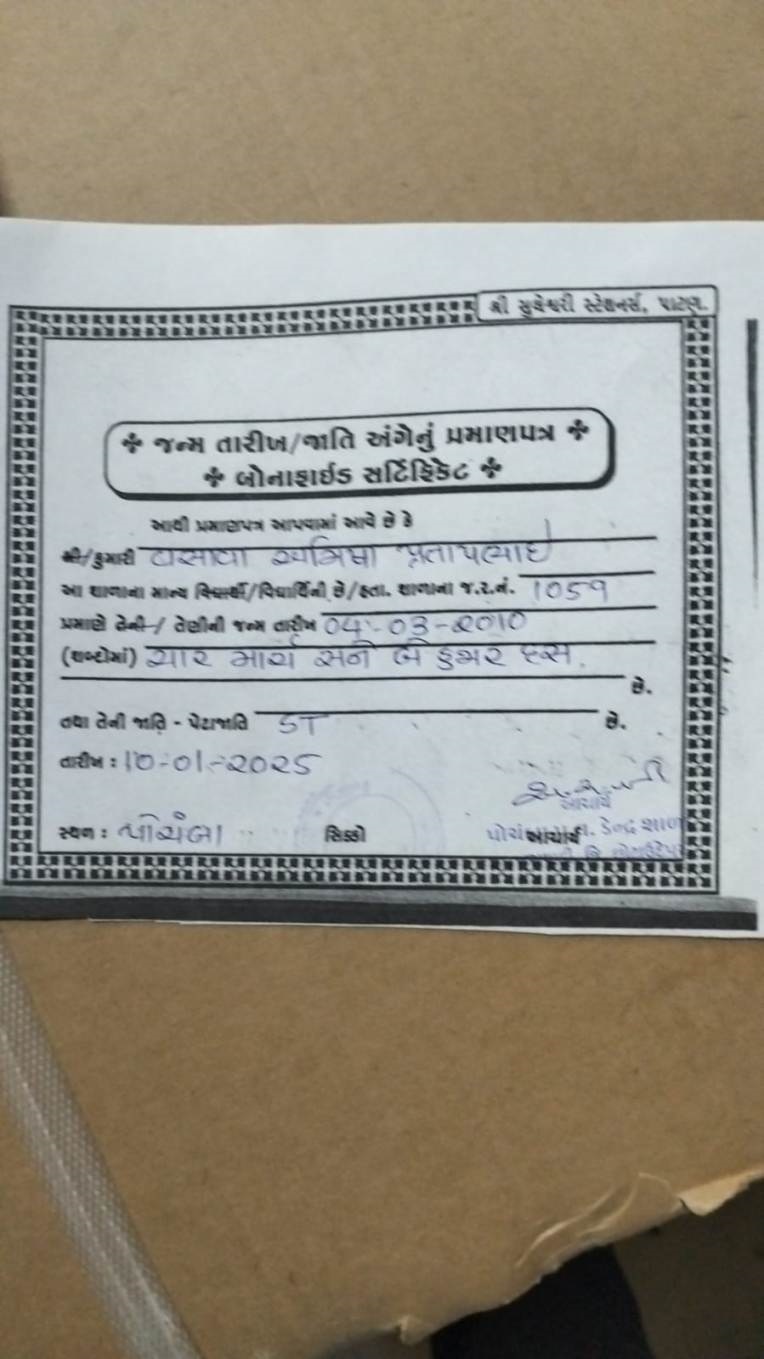 શ્રી સુવેશ્વરી સ્ટેશનર્સ, પાટણ.
જન્મ તારીખ/જાતિ અંગેનું પ્રમાણપત્ર
બોનાફાઈડ સર્ટિફિકેટ
આથી પ્રમાણપત્ર આપવામાં આવે છે કે
શ્રી/કુમારી વસાવા પ્રતાપભાઈ
આ શાળાના માન્ય વિદ્યાર્થી/વિદ્યાર્થિની છે/હતા. શાળાના જ.ર.નં. 1059
પ્રમાણે તેની/તેણીની જન્મ તારીખ 04-03-2010
(શબ્દોમાં) ચાર માર્ચ અને બે હજાર દસ.
છે.
તથા તેની જાતિ - પેટાજાતિ ST છે.
તારીખ : 10-01-2025
આચાર્ય
સ્થળ : પીચંબા સિક્કો આચાર્ય કેન્દ્ર